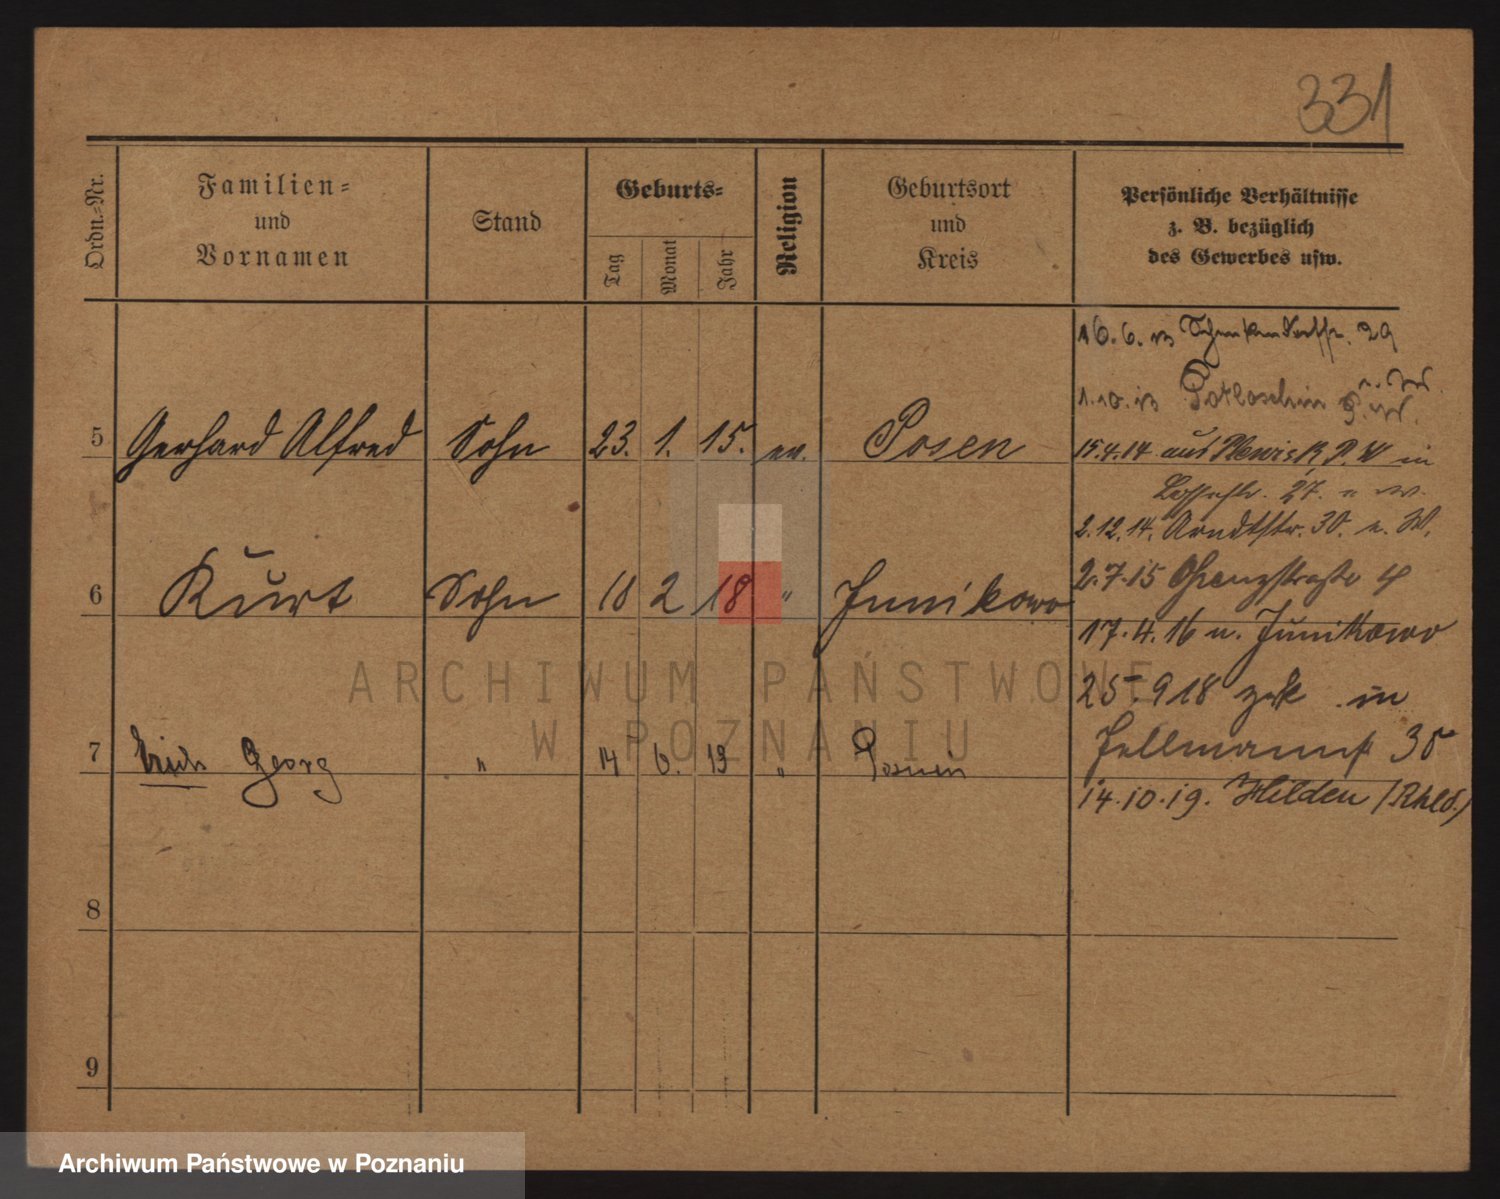 331
Ordn.-Nr.
Familien-
und
Vornamen
Stand
Geburts-
Tag
Monat
Jahr
Religion
Geburtsort
und
Kreis
Persönliche Verhältnisse
z. B. bezüglich
des Gewerbes usw.
16.6.13 29
1.10.13
5 Gerhard Alfred Sohn 23. 1. 15. ev. Posen
15.4.14 aus P. W in
27.
2.12.14. Arndtstr. 30. u. W.
6 Kurt Sohn 18 2 18 " Junikowo
2.7.15 Grenzstraße 4
17.4.16 n. Junikowo
25.9 18 zrk in
ARCHIWUM PAŃSTWOWE
W POZNANIU
7 Erich Georg " 14 6. 13 " Posen
14.10.19. Hilden (Rhld.)
8
9
Archiwum Państwowe w Poznaniu